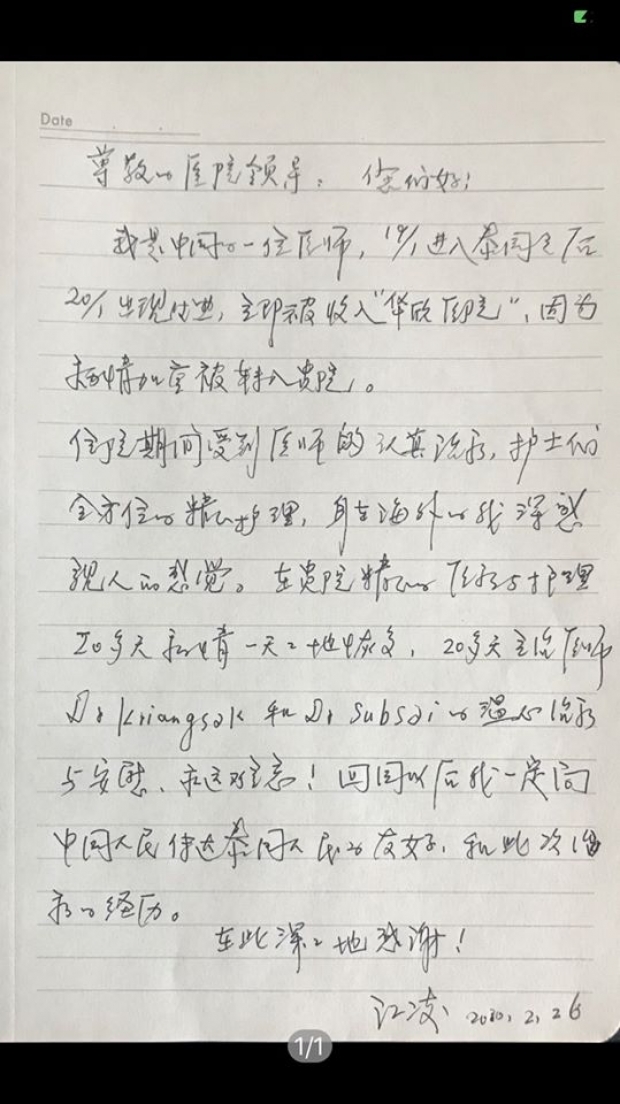 Date
尊敬的医院领导：您们好！
我是中国的一位医师，19/1进入泰国之后
20/1出现发热，立即被收入"华欣医院"，因为
病情加重被转入贵院。
住院期间受到医师的认真治疗，护士们
全方位的精心护理，身在海外的我深感
亲人的感觉。在贵院精心的医疗与护理
20多天病情一天二地恢复，20多天主治医师
Dr Kriangsak 和 Dr Subsai 的温心治疗
与安慰、永远难忘！回国以后我一定向
中国人民传达泰国人民的友好，和此次治
疗的经历。
在此深二地感谢！
江凌 2020.2.26
1/1